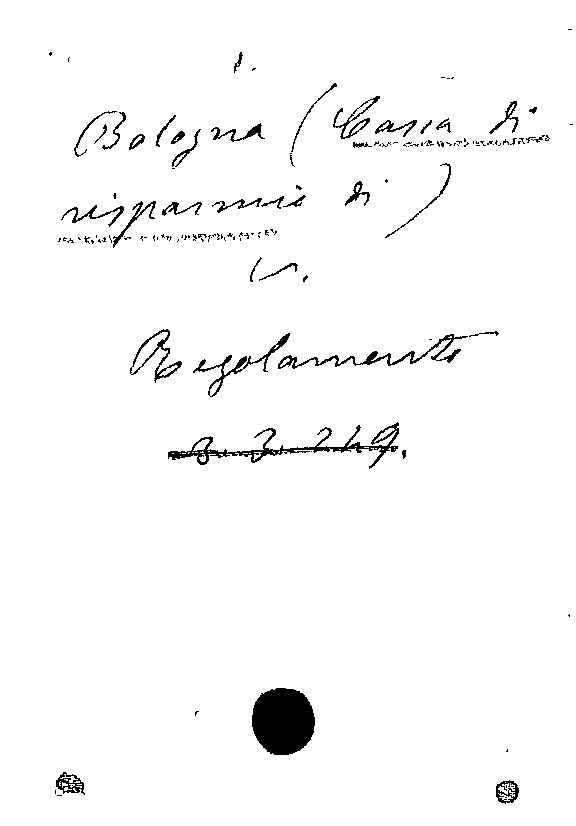 Bologna (Cassa di
risparmio di)
v.
Regolamento
3. 3. 249.